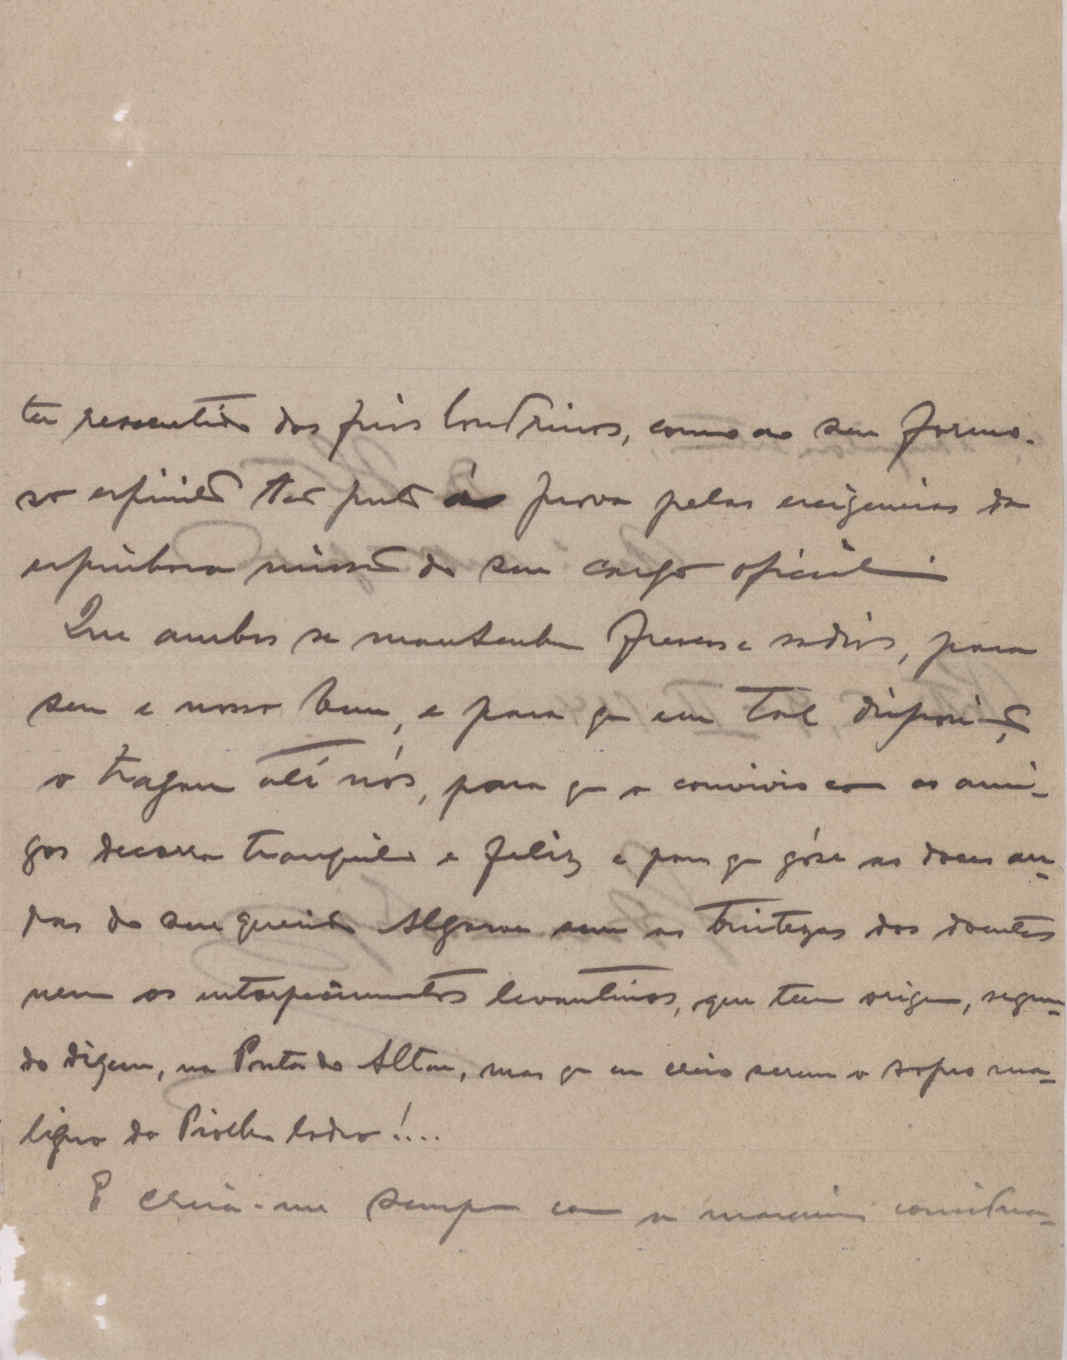 ter resentido dos frios londrinos, como ao seu formo-
so espirito ter posto á prova pelas exigencias da
espinhosa missão do seu cargo oficial.
Que ambos se mantenham frescos e sadios, para
seu e nosso bem, e para que em tal disposição
o tragam até nós, para que o convivio com os ami-
gos decorra tranquilo e feliz e para que góse as doces
do seu querido Algarve sem as tristezas dos doentes
nem os entorpecimentos levantinos, que teem origem, segun-
do dizem, na Ponta do Altar, mas que eu creio serem o sopro ma-
ligno do ladro!....
E creia-me sempre com a maxima considera-